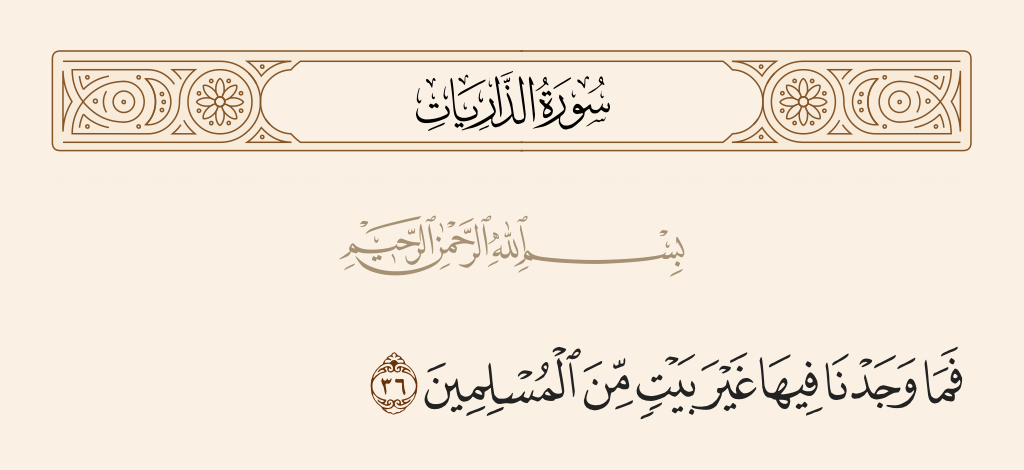 سُورَةُ الذَّارِيَاتِ
بِسْمِ ٱللَّهِ ٱلرَّحْمَٰنِ ٱلرَّحِيمِ
فَمَا وَجَدْنَا فِيهَا غَيْرَ بَيْتٍ مِّنَ ٱلْمُسْلِمِينَ ٣٦